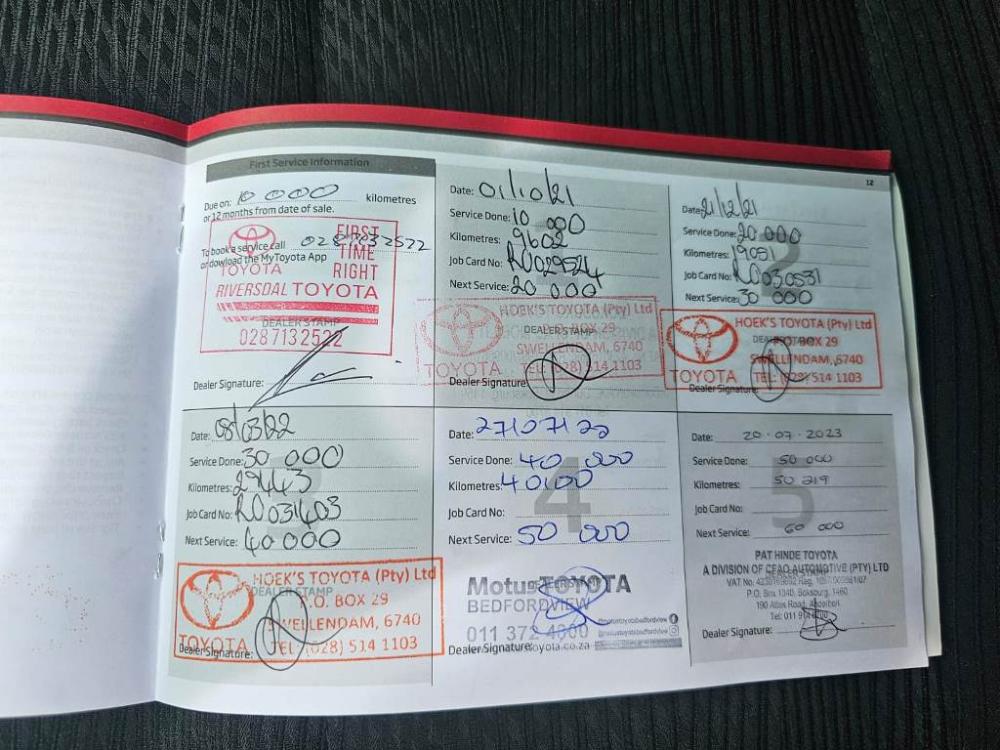 12
First Service Information
Due on: 10 000 kilometres
or 12 months from date of sale.
To book a service call 0287132522
or dowload the MyToyota App
FIRST
TIME
RIGHT
TOYOTA
RIVERSDAL TOYOTA
DEALER STAMP
0287132522
Dealer Signature:
Date: 01/10/21
Service Done: 10 000
Kilometres: 9602
Job Card No: R0029524
Next Service: 20 000
HOEK'S TOYOTA (Pty) Ltd
DEALER STAMP
P.O. BOX 29
SWELLENDAM, 6740
TOYOTA TEL: (028) 514 1103
Dealer Signature:
Date: 21/12/21
Service Done: 20 000
Kilometres: 19051
Job Card No: R0030531
Next Service: 30 000
HOEK'S TOYOTA (Pty) Ltd
P.O. BOX 29
SWELLENDAM, 6740
TOYOTA TEL: (028) 514 1103
Dealer Signature:
Date: 08/03/22
Service Done: 30 000
Kilometres: 29443
Job Card No: R0031403
Next Service: 40 000
HOEK'S TOYOTA (Pty) Ltd
DEALER STAMP
P.O. BOX 29
SWELLENDAM, 6740
TOYOTA TEL: (028) 514 1103
Dealer Signature:
4
Date: 27/07/22
Service Done: 40 000
Kilometres: 40100
Job Card No:
Next Service: 50 000
Motus TOYOTA
BEDFORDVIEW
011 372 4000
Dealer Signature:
5
Date: 20.07.2023
Service Done: 50 000
Kilometres: 50 219
Job Card No:
Next Service: 60 000
PAT HINDE TOYOTA
A DIVISION OF CFAO AUTOMOTIVE (PTY) LTD
P.O. Box 1340, Boksburg, 1460
190 Atlas Road,
Tel: 011
Dealer Signature: